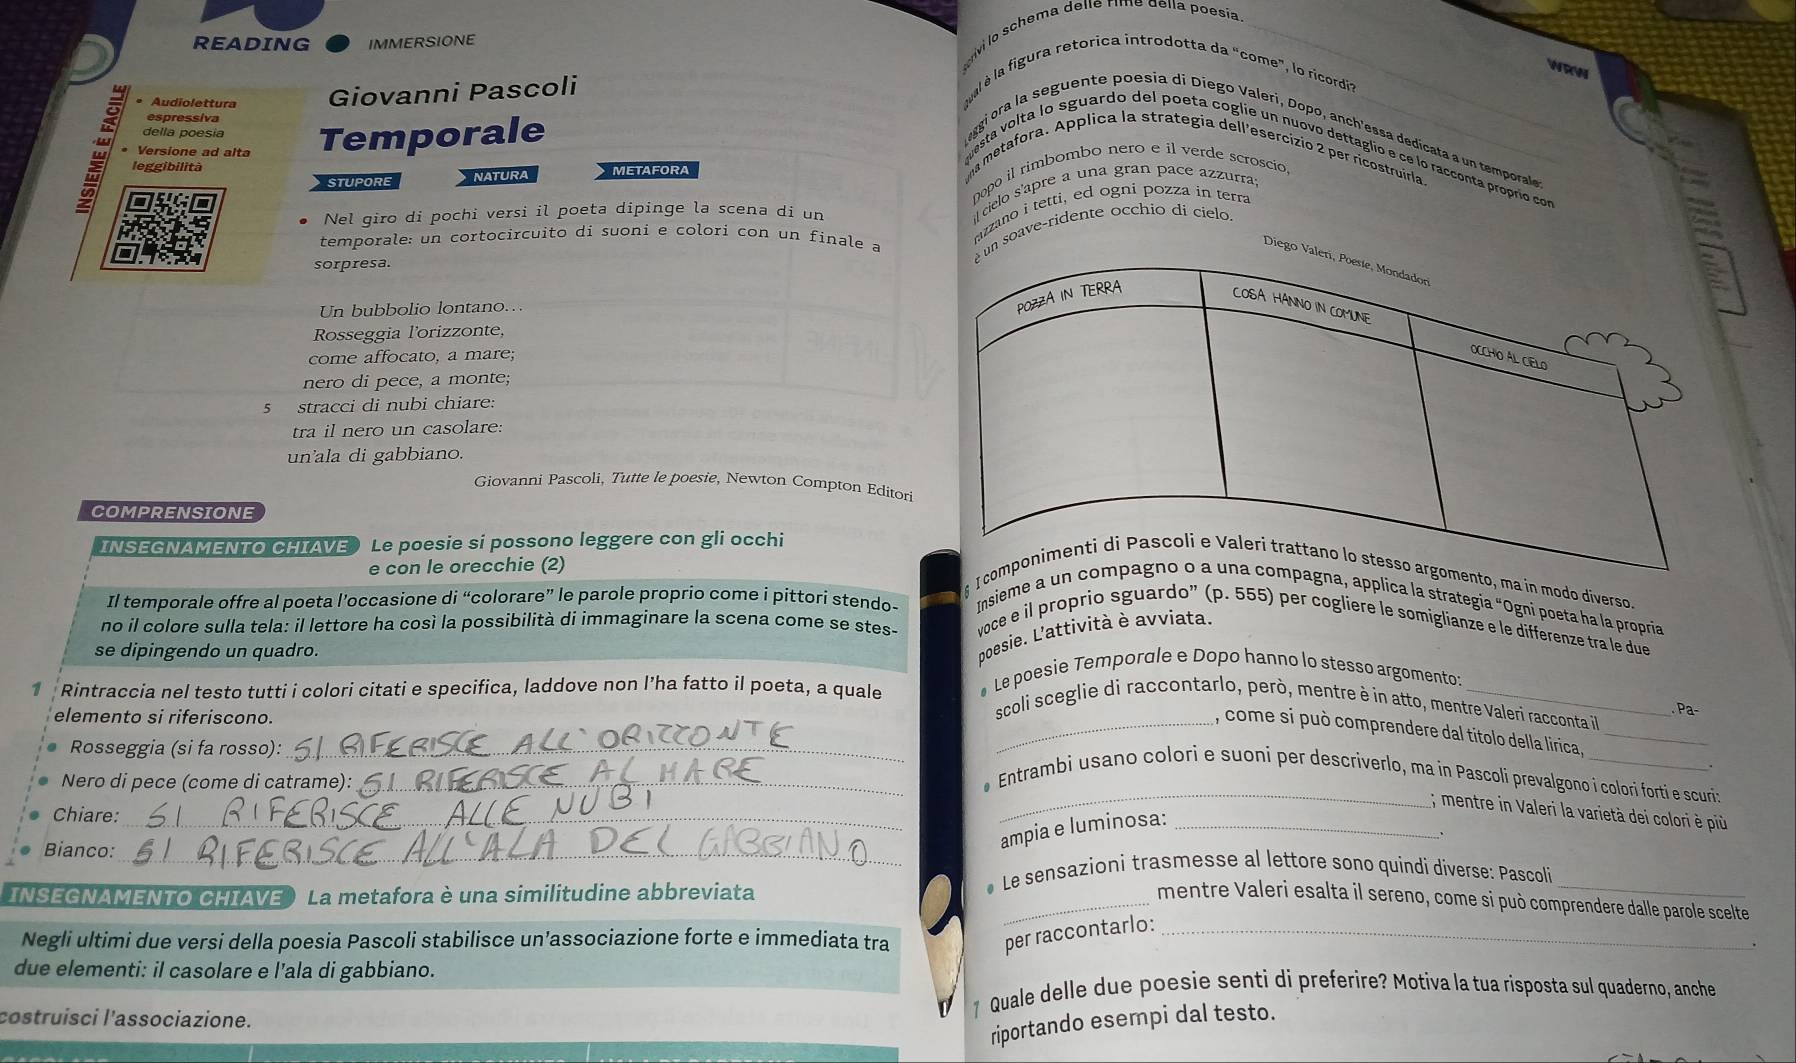 READING IMMERSIONE
INSIEME È FACILE
• Audiolettura
espressiva
della poesia
• Versione ad alta
leggibilità
Giovanni Pascoli
Temporale
STUPORE NATURA METAFORA
• Nel giro di pochi versi il poeta dipinge la scena di un
temporale: un cortocircuito di suoni e colori con un finale a
sorpresa.
Un bubbolio lontano...
Rosseggia l'orizzonte,
come affocato, a mare;
nero di pece, a monte;
5 stracci di nubi chiare:
tra il nero un casolare:
un'ala di gabbiano.
Giovanni Pascoli, Tutte le poesie, Newton Compton Editori
COMPRENSIONE
INSEGNAMENTO CHIAVE Le poesie si possono leggere con gli occhi
e con le orecchie (2)
Il temporale offre al poeta l'occasione di “colorare” le parole proprio come i pittori stendo-
no il colore sulla tela: il lettore ha così la possibilità di immaginare la scena come se stes-
se dipingendo un quadro.
1 Rintraccia nel testo tutti i colori citati e specifica, laddove non l'ha fatto il poeta, a quale
elemento si riferiscono.
• Rosseggia (si fa rosso): SI RIFERISCE ALL'ORIZZONTE
• Nero di pece (come di catrame): SI RIFERISCE AL MARE
• Chiare: SI RIFERISCE ALLE NUBI
• Bianco: SI RIFERISCE ALL'ALA DEL GABBIANO
INSEGNAMENTO CHIAVE La metafora è una similitudine abbreviata
Negli ultimi due versi della poesia Pascoli stabilisce un'associazione forte e immediata tra
due elementi: il casolare e l'ala di gabbiano.
costruisci l'associazione.
WRW
lo schema delle rime della poesia.
è la figura retorica introdotta da “come”, lo ricordi?
ora la seguente poesia di Diego Valeri, Dopo, anch'essa dedicata a un temporale:
questa volta lo sguardo del poeta coglie un nuovo dettaglio e ce lo racconta proprio con
una metafora. Applica la strategia dell'esercizio 2 per ricostruirla.
Dopo il rimbombo nero e il verde scroscio,
il cielo s'apre a una gran pace azzurra;
razzano i tetti, ed ogni pozza in terra
è un soave-ridente occhio di cielo.
Diego Valeri, Poesie, Mondadori
POZZA IN TERRA COSA HANNO IN COMUNE OCCHIO AL CIELO
6 I componimenti di Pascoli e Valeri trattano lo stesso argomento, ma in modo diverso.
Insieme a un compagno o a una compagna, applica la strategia “Ogni poeta ha la propria
voce e il proprio sguardo” (p. 555) per cogliere le somiglianze e le differenze tra le due
poesie. L'attività è avviata.
• Le poesie Temporale e Dopo hanno lo stesso argomento: . Pa-
scoli sceglie di raccontarlo, però, mentre è in atto, mentre Valeri racconta il
, come si può comprendere dal titolo della lirica, .
• Entrambi usano colori e suoni per descriverlo, ma in Pascoli prevalgono i colori forti e scuri:
; mentre in Valeri la varietà dei colori è più
ampia e luminosa: .
• Le sensazioni trasmesse al lettore sono quindi diverse: Pascoli
mentre Valeri esalta il sereno, come si può comprendere dalle parole scelte
per raccontarlo: .
7 Quale delle due poesie senti di preferire? Motiva la tua risposta sul quaderno, anche
riportando esempi dal testo.